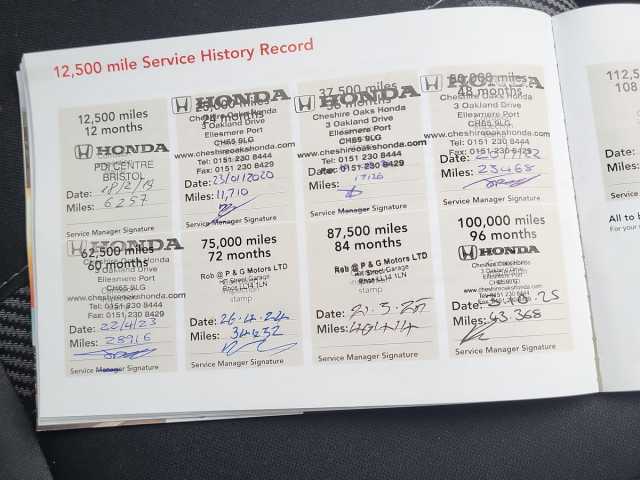 12,500 mile Service History Record
12,500 miles
12 months
HONDA
PDI CENTRE
BRISTOL
Date: 18/2/19
Miles: 6257
Service Manager Signature
HONDA
24 months
Cheshire Oaks Honda
3 Oakland Drive
Ellesmere Port
CH65 9LG
www.cheshireoakshonda.com
Tel: 0151 230 8444
Fax: 0151 230 8429
Date: 23/01/2020
Miles: 11,710
Service Manager Signature
37,500 miles
HONDA
36 months
Cheshire Oaks Honda
3 Oakland Drive
Ellesmere Port
CH65 9LG
www.cheshireoakshonda.com
Tel: 0151 230 8444
Fax: 0151 230 8429
Date:
Miles: 17126
Service Manager Signature
50,000 miles
HONDA
48 months
Cheshire Oaks Honda
3 Oakland Drive
Ellesmere Port
CH65 9LG
www.cheshireoakshonda.com
Tel: 0151 230 8444
Fax: 0151 230 8429
Date:
Miles: 23468
Service Manager Signature
112,5
108
62,500 miles
60 months
3 Oakland Drive
Ellesmere Port
CH65 9LG
www.cheshireoakshonda.com
Tel: 0151 230 8444
Fax: 0151 230 8429
Date: 22/4/23
Miles: 28916
Service Manager Signature
75,000 miles
72 months
Rob @ P & G Motors LTD
Rhos LL14 1LN
stamp
Date: 26.4.24
Miles: 34432
Service Manager Signature
87,500 miles
84 months
Rob @ P & G Motors LTD
Rhos LL14 1LN
stamp
Date:
Miles: 40414
Service Manager Signature
100,000 miles
96 months
HONDA
3 Oakland Drive
Ellesmere Port
www.cheshireoakshonda.com
Date:
Miles: 43.368
Service Manager Signature
All to b
For your